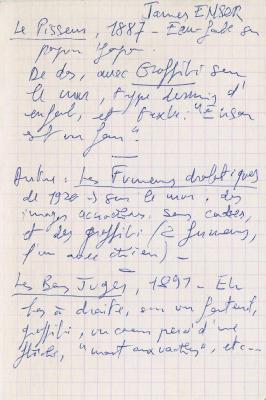 James ENSOR
Le Pisseur, 1887 - Eau-forte sur
papier Japon.
De dos, avec Graffiti sur
le mur, type dessins d'
enfant, et texte: "Ensor
est un fou"
Autre: Les Fumeurs drolatiques
de 1920 → sur le mur, des
images accrochées sans cadres,
et des graffiti (2 fumeurs,
l'un avec chien) -
Les Bons Juges, 1891 - En
bas à droite, sur un fauteuil,
graffiti, un coeur percé d'une
flèche, "mort aux vaches", etc...